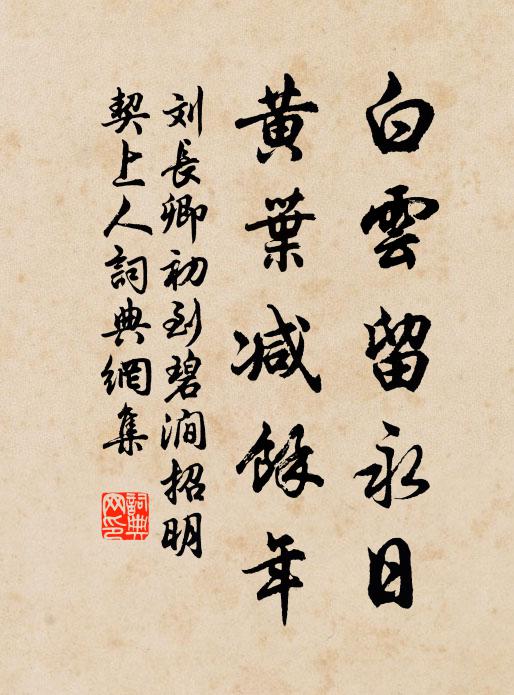 白雲留永日
黃葉減餘年
刘長卿初到碧澗招明
契上人詞典網集
詞典
网印